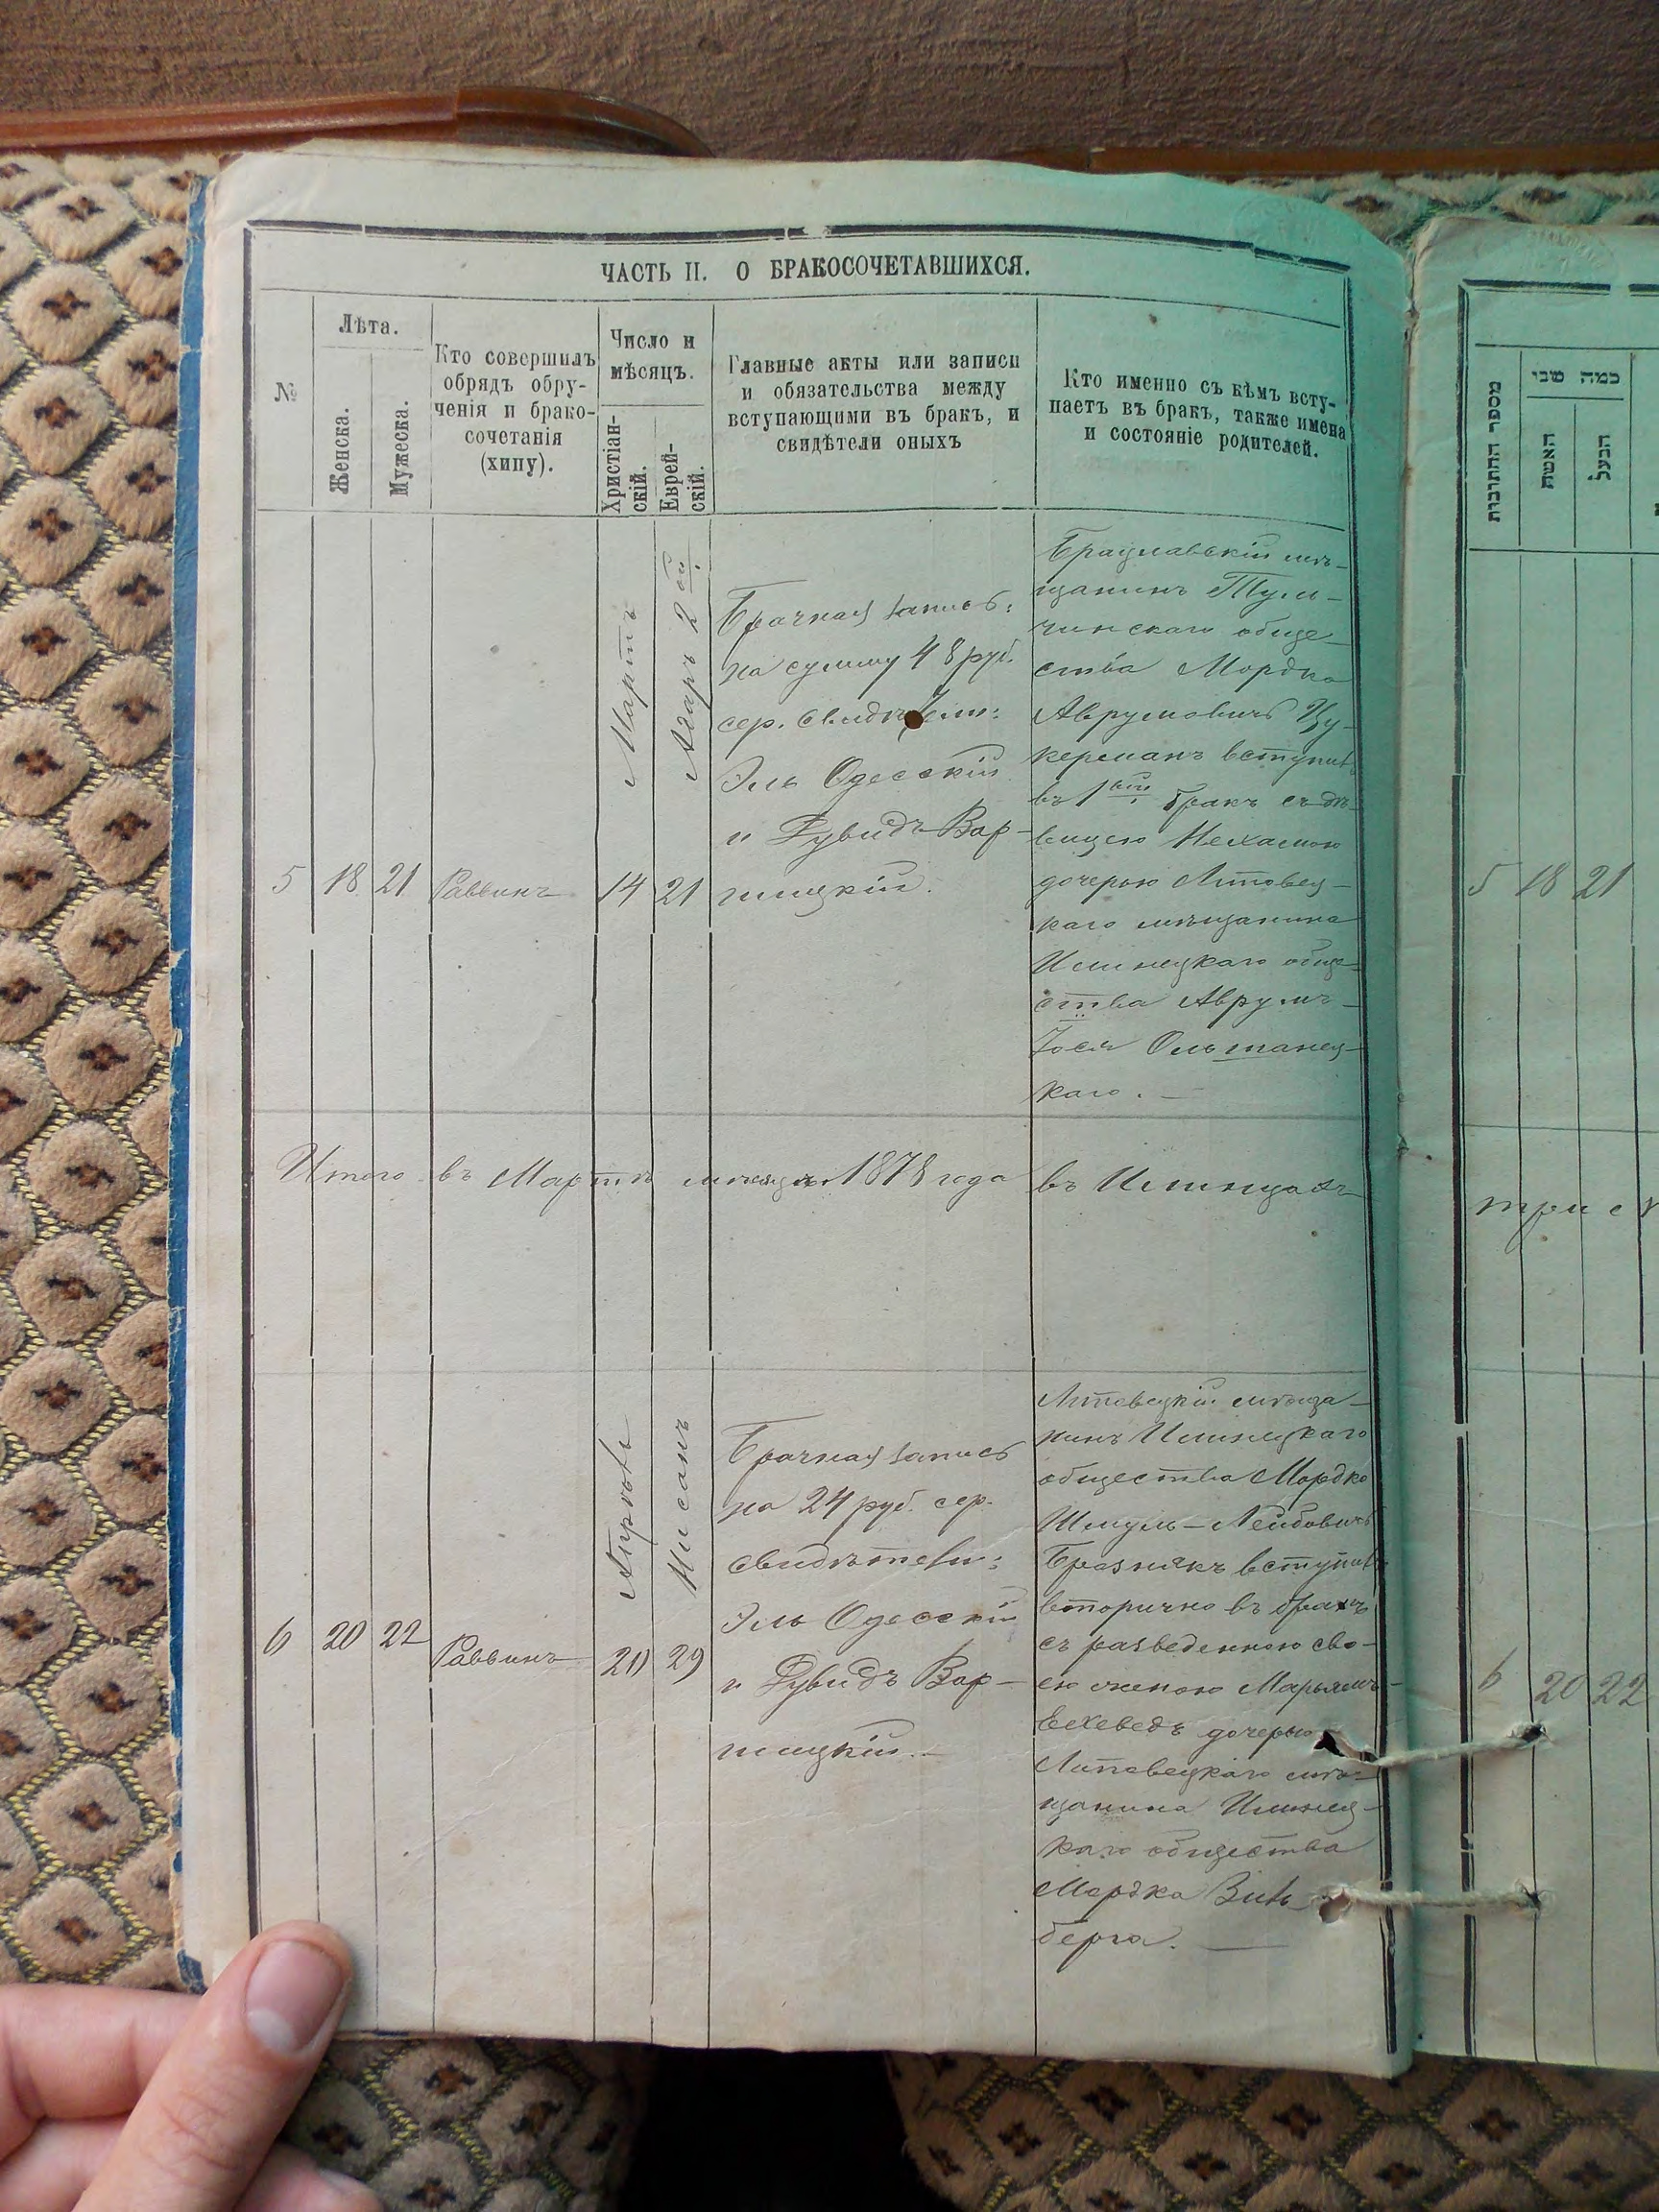 ЧАСТЬ II. О БРАКОСОЧЕТАВШИХСЯ.
№
Лѣта.
Женска.
Мужеска.
Кто совершилъ
обрядъ обру-
ченія и брако-
сочетанія
(хипу).
Число и
мѣсяцъ.
Христіан-
скій.
Еврей-
скій.
Главные акты или записи
и обязательства между
вступающими въ бракъ, и
свидѣтели оныхъ
Кто именно съ кѣмъ всту-
паетъ въ бракъ, также имена
и состояніе родителей.
5
18
21
Раввинъ
Мартъ
14
Адаръ 2ой
21
Брачная запись:
на сумму 48 руб.
сер. свидѣтели:
Эль Одесскій
и Дувидъ Вар-
шицкій.
Брацлавскій мѣ-
щанинъ Туль-
чинскаго обще-
ства Мордко
Аврумовичъ Цу-
керманъ вступилъ
въ 1вый бракъ съ дѣ-
вицею Нехамою
дочерью Липовец-
каго мѣщанина
Илинецкаго обще-
ства Аврумъ-
Іося Ольшанец-
каго. —
Итого въ Мартѣ мѣсяцѣ 1878 года въ Илинцахъ
6
20
22
Раввинъ
Апрѣль
20
Нисанъ
29
Брачная запись
на 24 руб. сер.
свидѣтели:
Эль Одесскій
и Дувидъ Вар-
шицкій. —
Липовецкій мѣща-
нинъ Илинецкаго
общества Мордко
Шмуль-Лейбовичъ
вступилъ
вторично въ бракъ
съ разведенною сво-
ею женою Марьямъ-
Ехеведъ дочерью
Липовецкаго мѣ-
щанина Илинец-
каго общества
Мордка Виль-
берга. —
מספר החתונות
כמה שני
האשת
הבעל
5 18 21
три
6 20 22